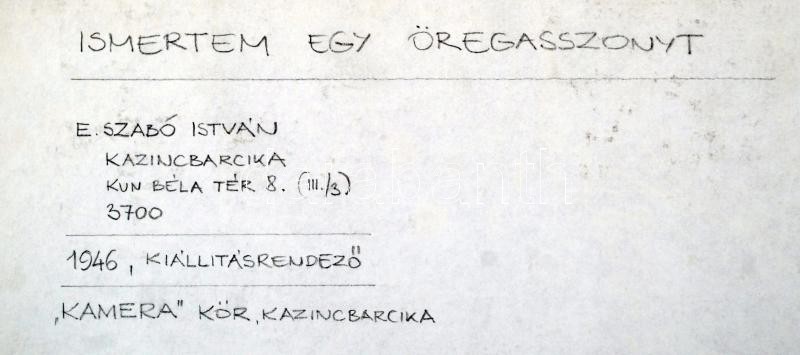 ISMERTEM EGY ÖREGASSZONYT
E. SZABÓ ISTVÁN
KAZINCBARCIKA
KUN BÉLA TÉR 8. (III./3.)
3700
1946, KIÁLLITÁSRENDEZŐ
„KAMERA" KÖR, KAZINCBARCIKA